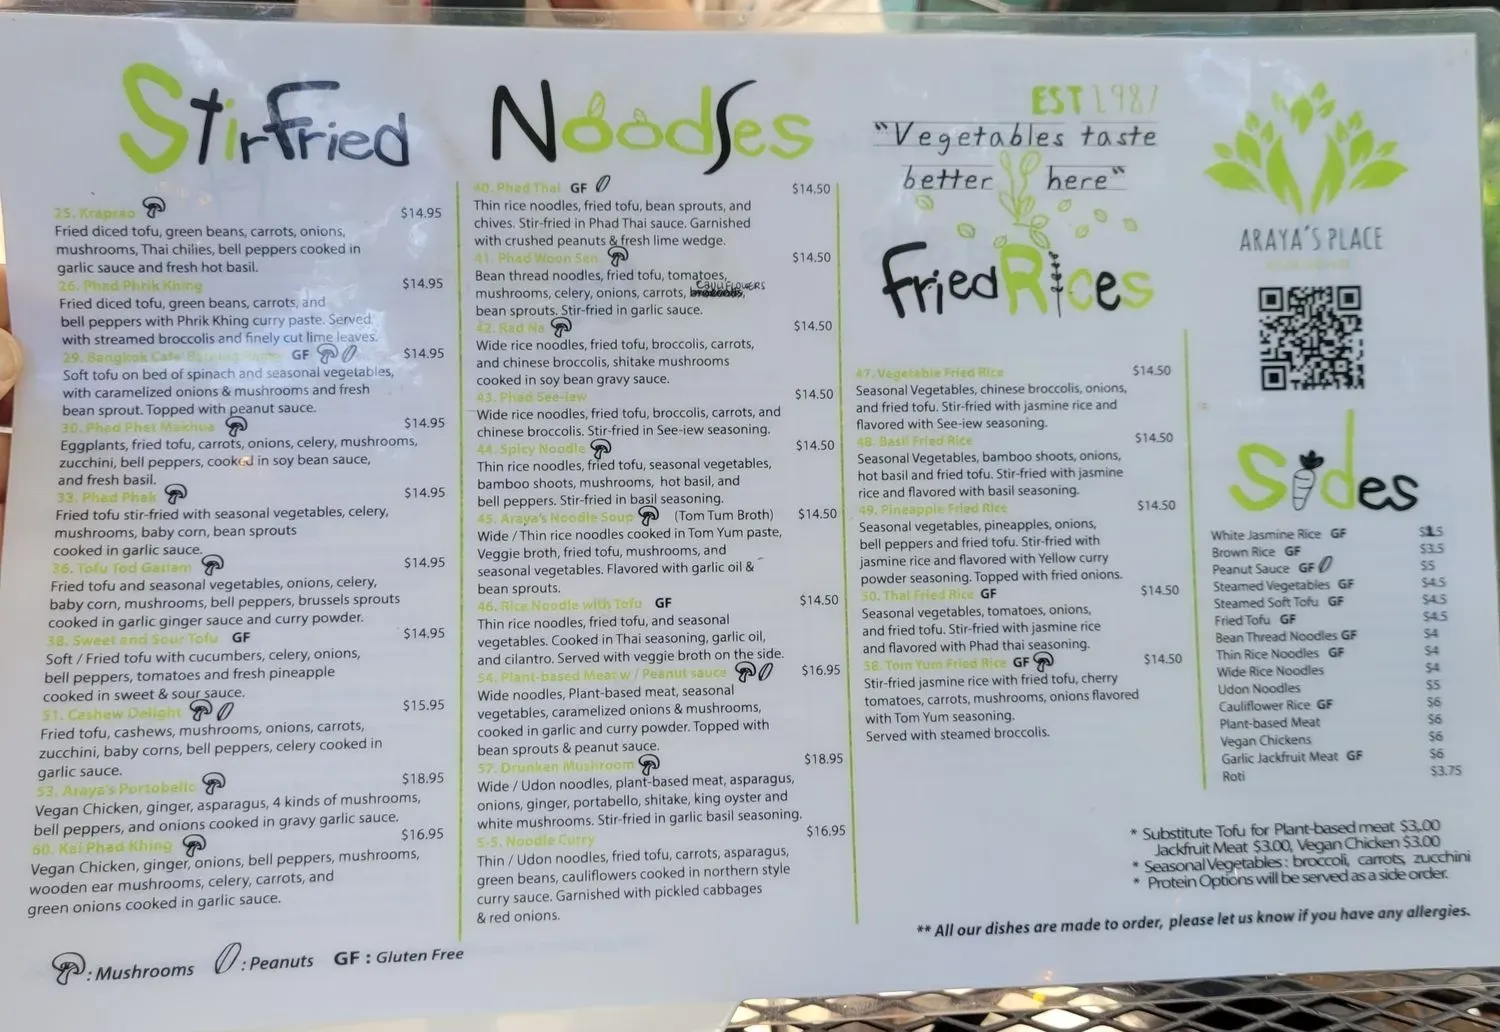 StirFried
25. Kraprao $14.95
Fried diced tofu, green beans, carrots, onions,
mushrooms, Thai chilies, bell peppers cooked in
garlic sauce and fresh hot basil.
26. Phad Phrik Khing $14.95
Fried diced tofu, green beans, carrots, and
bell peppers with Phrik Khing curry paste. Served
with streamed broccolis and finely cut lime leaves.
29. Bangkok Cafe GF $14.95
Soft tofu on bed of spinach and seasonal vegetables,
with caramelized onions & mushrooms and fresh
bean sprout. Topped with peanut sauce.
30. Phad Phet Makhua $14.95
Eggplants, fried tofu, carrots, onions, celery, mushrooms,
zucchini, bell peppers, cooked in soy bean sauce,
and fresh basil.
33. Phad Phak $14.95
Fried tofu stir-fried with seasonal vegetables, celery,
mushrooms, baby corn, bean sprouts
cooked in garlic sauce.
36. Tofu Tod Gatiam $14.95
Fried tofu and seasonal vegetables, onions, celery,
baby corn, mushrooms, bell peppers, brussels sprouts
cooked in garlic ginger sauce and curry powder.
38. Sweet and Sour Tofu GF $14.95
Soft / Fried tofu with cucumbers, celery, onions,
bell peppers, tomatoes and fresh pineapple
cooked in sweet & sour sauce.
51. Cashew Delight $15.95
Fried tofu, cashews, mushrooms, onions, carrots,
zucchini, baby corns, bell peppers, celery cooked in
garlic sauce.
53. Araya's Portobello $18.95
Vegan Chicken, ginger, asparagus, 4 kinds of mushrooms,
bell peppers, and onions cooked in gravy garlic sauce.
60. Kai Phad Khing $16.95
Vegan Chicken, ginger, onions, bell peppers, mushrooms,
wooden ear mushrooms, celery, carrots, and
green onions cooked in garlic sauce.
: Mushrooms : Peanuts GF : Gluten Free
Noodles
40. Phad Thai GF $14.50
Thin rice noodles, fried tofu, bean sprouts, and
chives. Stir-fried in Phad Thai sauce. Garnished
with crushed peanuts & fresh lime wedge.
41. Phad Woon Sen $14.50
Bean thread noodles, fried tofu, tomatoes,
mushrooms, celery, onions, carrots, CAULIFLOWERS
bean sprouts. Stir-fried in garlic sauce.
42. Rad Na $14.50
Wide rice noodles, fried tofu, broccolis, carrots,
and chinese broccolis, shitake mushrooms
cooked in soy bean gravy sauce.
43. Phad See-iew $14.50
Wide rice noodles, fried tofu, broccolis, carrots, and
chinese broccolis. Stir-fried in See-iew seasoning.
44. Spicy Noodle $14.50
Thin rice noodles, fried tofu, seasonal vegetables,
bamboo shoots, mushrooms, hot basil, and
bell peppers. Stir-fried in basil seasoning.
45. Araya's Noodle Soup (Tom Tum Broth) $14.50
Wide / Thin rice noodles cooked in Tom Yum paste,
Veggie broth, fried tofu, mushrooms, and
seasonal vegetables. Flavored with garlic oil &
bean sprouts.
46. Rice Noodle with Tofu GF $14.50
Thin rice noodles, fried tofu, and seasonal
vegetables. Cooked in Thai seasoning, garlic oil,
and cilantro. Served with veggie broth on the side.
54. Plant-based Meat w / Peanut sauce $16.95
Wide noodles, Plant-based meat, seasonal
vegetables, caramelized onions & mushrooms,
cooked in garlic and curry powder. Topped with
bean sprouts & peanut sauce.
57. Drunken Mushroom $18.95
Wide / Udon noodles, plant-based meat, asparagus,
onions, ginger, portabello, shitake, king oyster and
white mushrooms. Stir-fried in garlic basil seasoning.
5-5. Noodle Curry $16.95
Thin / Udon noodles, fried tofu, carrots, asparagus,
green beans, cauliflowers cooked in northern style
curry sauce. Garnished with pickled cabbages
& red onions.
EST 1987
"Vegetables taste
better here"
Fried Rices
47. Vegetable Fried Rice $14.50
Seasonal Vegetables, chinese broccolis, onions,
and fried tofu. Stir-fried with jasmine rice and
flavored with See-iew seasoning.
48. Basil Fried Rice $14.50
Seasonal Vegetables, bamboo shoots, onions,
hot basil and fried tofu. Stir-fried with jasmine
rice and flavored with basil seasoning.
49. Pineapple Fried Rice $14.50
Seasonal vegetables, pineapples, onions,
bell peppers and fried tofu. Stir-fried with
jasmine rice and flavored with Yellow curry
powder seasoning. Topped with fried onions.
50. Thai Fried Rice GF $14.50
Seasonal vegetables, tomatoes, onions,
and fried tofu. Stir-fried with jasmine rice
and flavored with Phad thai seasoning.
58. Tom Yum Fried Rice GF $14.50
Stir-fried jasmine rice with fried tofu, cherry
tomatoes, carrots, mushrooms, onions flavored
with Tom Yum seasoning.
Served with steamed broccolis.
ARAYA'S PLACE
Sides
White Jasmine Rice GF
Brown Rice GF $3.5
Peanut Sauce GF $5
Steamed Vegetables GF $4.5
Steamed Soft Tofu GF $4.5
Fried Tofu GF $4.5
Bean Thread Noodles GF $4
Thin Rice Noodles GF $4
Wide Rice Noodles $4
Udon Noodles $5
Cauliflower Rice GF $6
Plant-based Meat $6
Vegan Chickens $6
Garlic Jackfruit Meat GF $6
Roti $3.75
* Substitute Tofu for Plant-based meat $3,.00
Jackfruit Meat $3.00, Vegan Chicken $3.00
* Seasonal Vegetables : broccoli, carrots, zucchini
* Protein Options will be served as a side order.
** All our dishes are made to order, please let us know if you have any allergies.